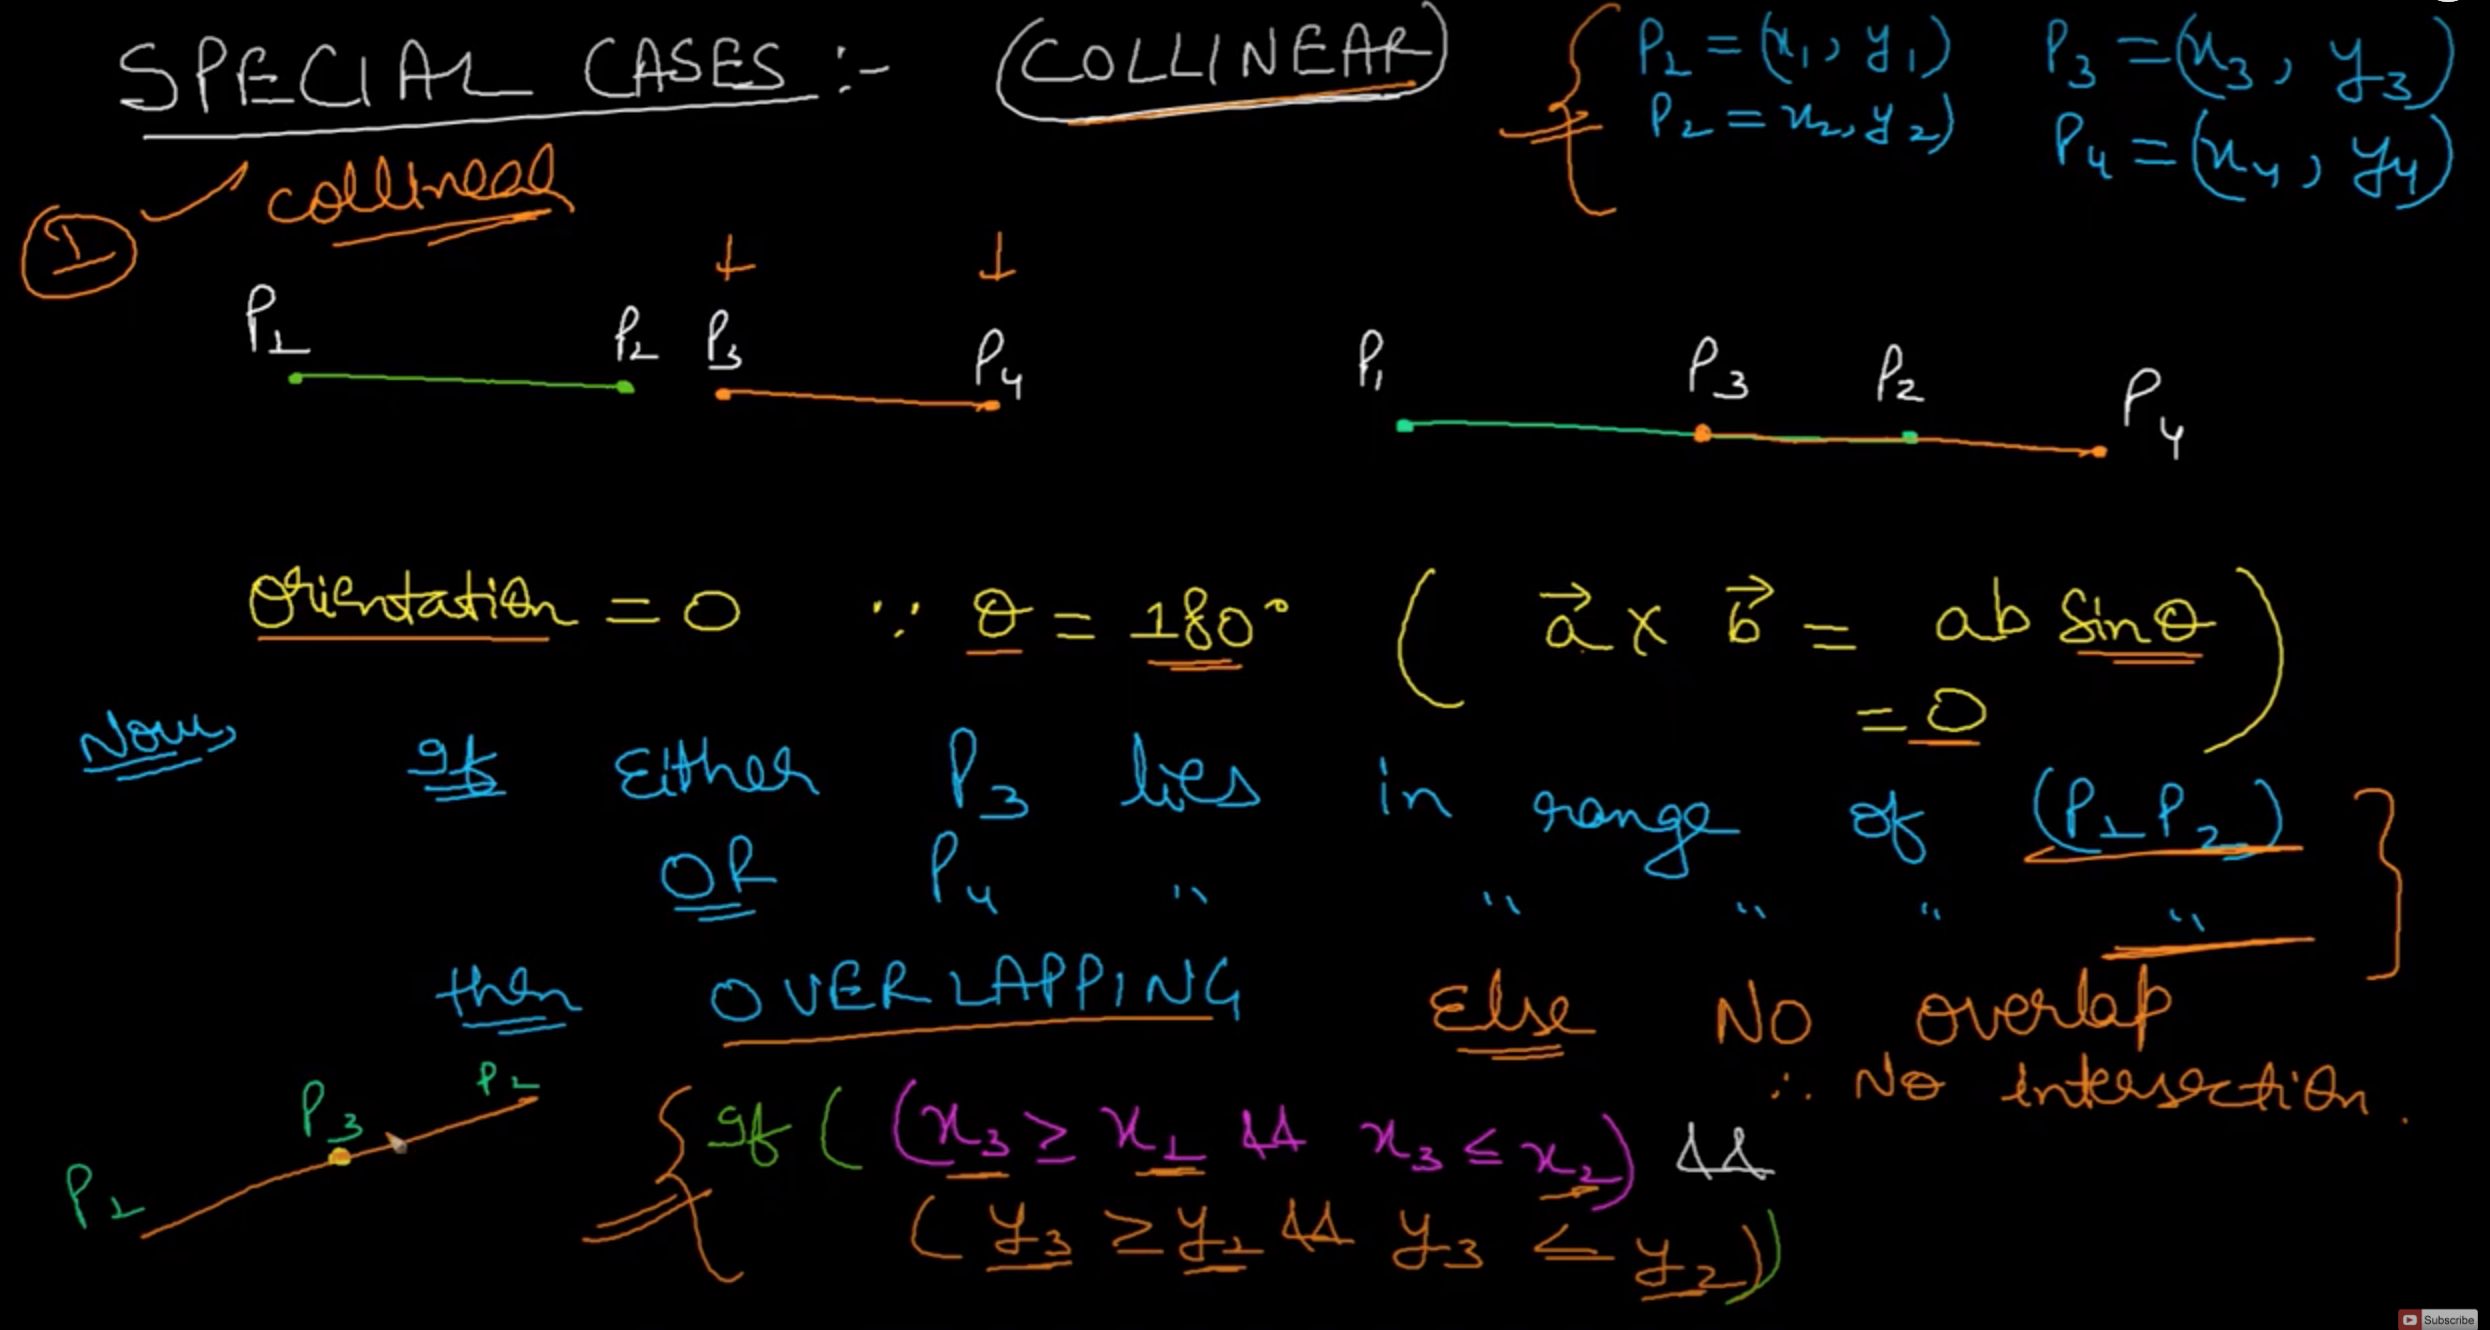 SPECIAL CASES :- (COLLINEAR)
P1 = (x1, y1) P3 = (x3, y3)
P2 = x2, y2) P4 = (x4, y4)
① collinear
P1 P2 P3 P4
P1 P3 P2 P4
Orientation = 0 ∵ θ = 180° ( a⃗ × b⃗ = ab Sinθ
= 0 )
Now, If Either P3 lies in range of (P1P2)
OR P4 " " " " "
then OVERLAPPING Else NO overlap
∴ No intersection.
P1 P3 P2
If ( (x3 ≥ x1 && x3 ≤ x2) &&
( y3 ≥ y1 && y3 ≤ y2))
Subscribe